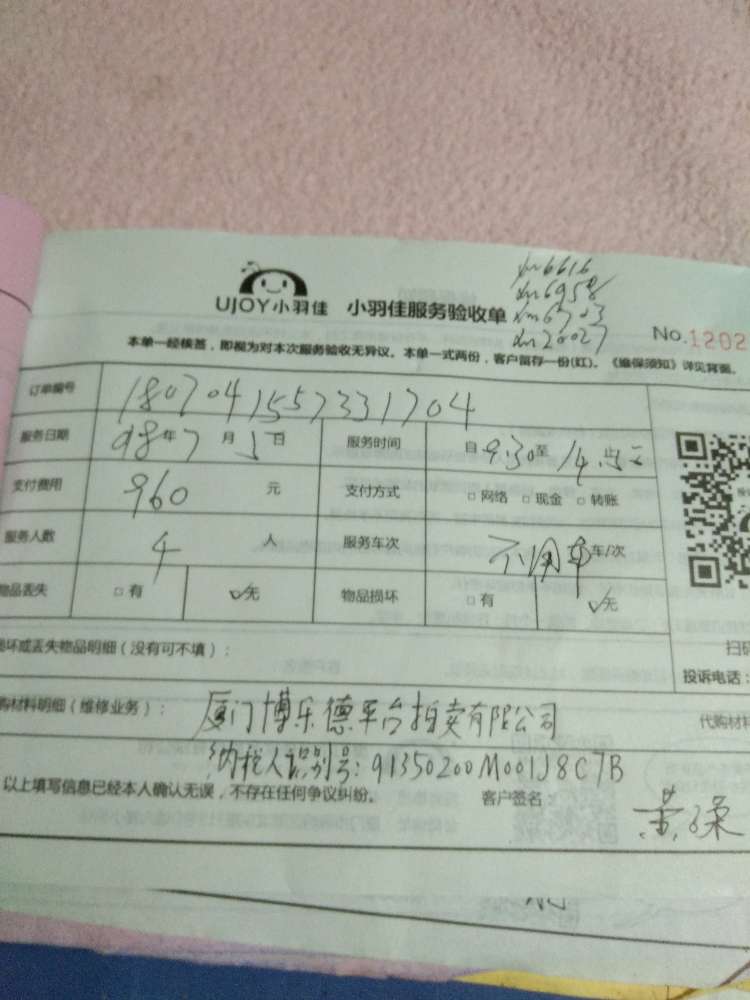 xm6616
xm6958
xm6703
xm20027
UJOY小羽佳 小羽佳服务验收单
No.1202
本单一经核签，即视为对本次服务验收无异议。本单一式两份，客户留存一份(红)。《维保须知》详见背面。
订单编号 1807041557331704
服务日期 98年7月5日 服务时间 自9:30至14:
支付费用 960元 支付方式 □网络 □现金 □转账
服务人数 4人 服务车次 不用车车/次
物品丢失 □有 ☑无 物品损坏 □有 ☑无
损坏或丢失物品明细（没有可不填）：
扫码
投诉电话：
购材料明细（维修业务）： 厦门博乐德平台拍卖有限公司
代购材料
纳税人识别号：91350200M001J8C7B
以上填写信息已经本人确认无误，不存在任何争议纠纷。 客户签名：